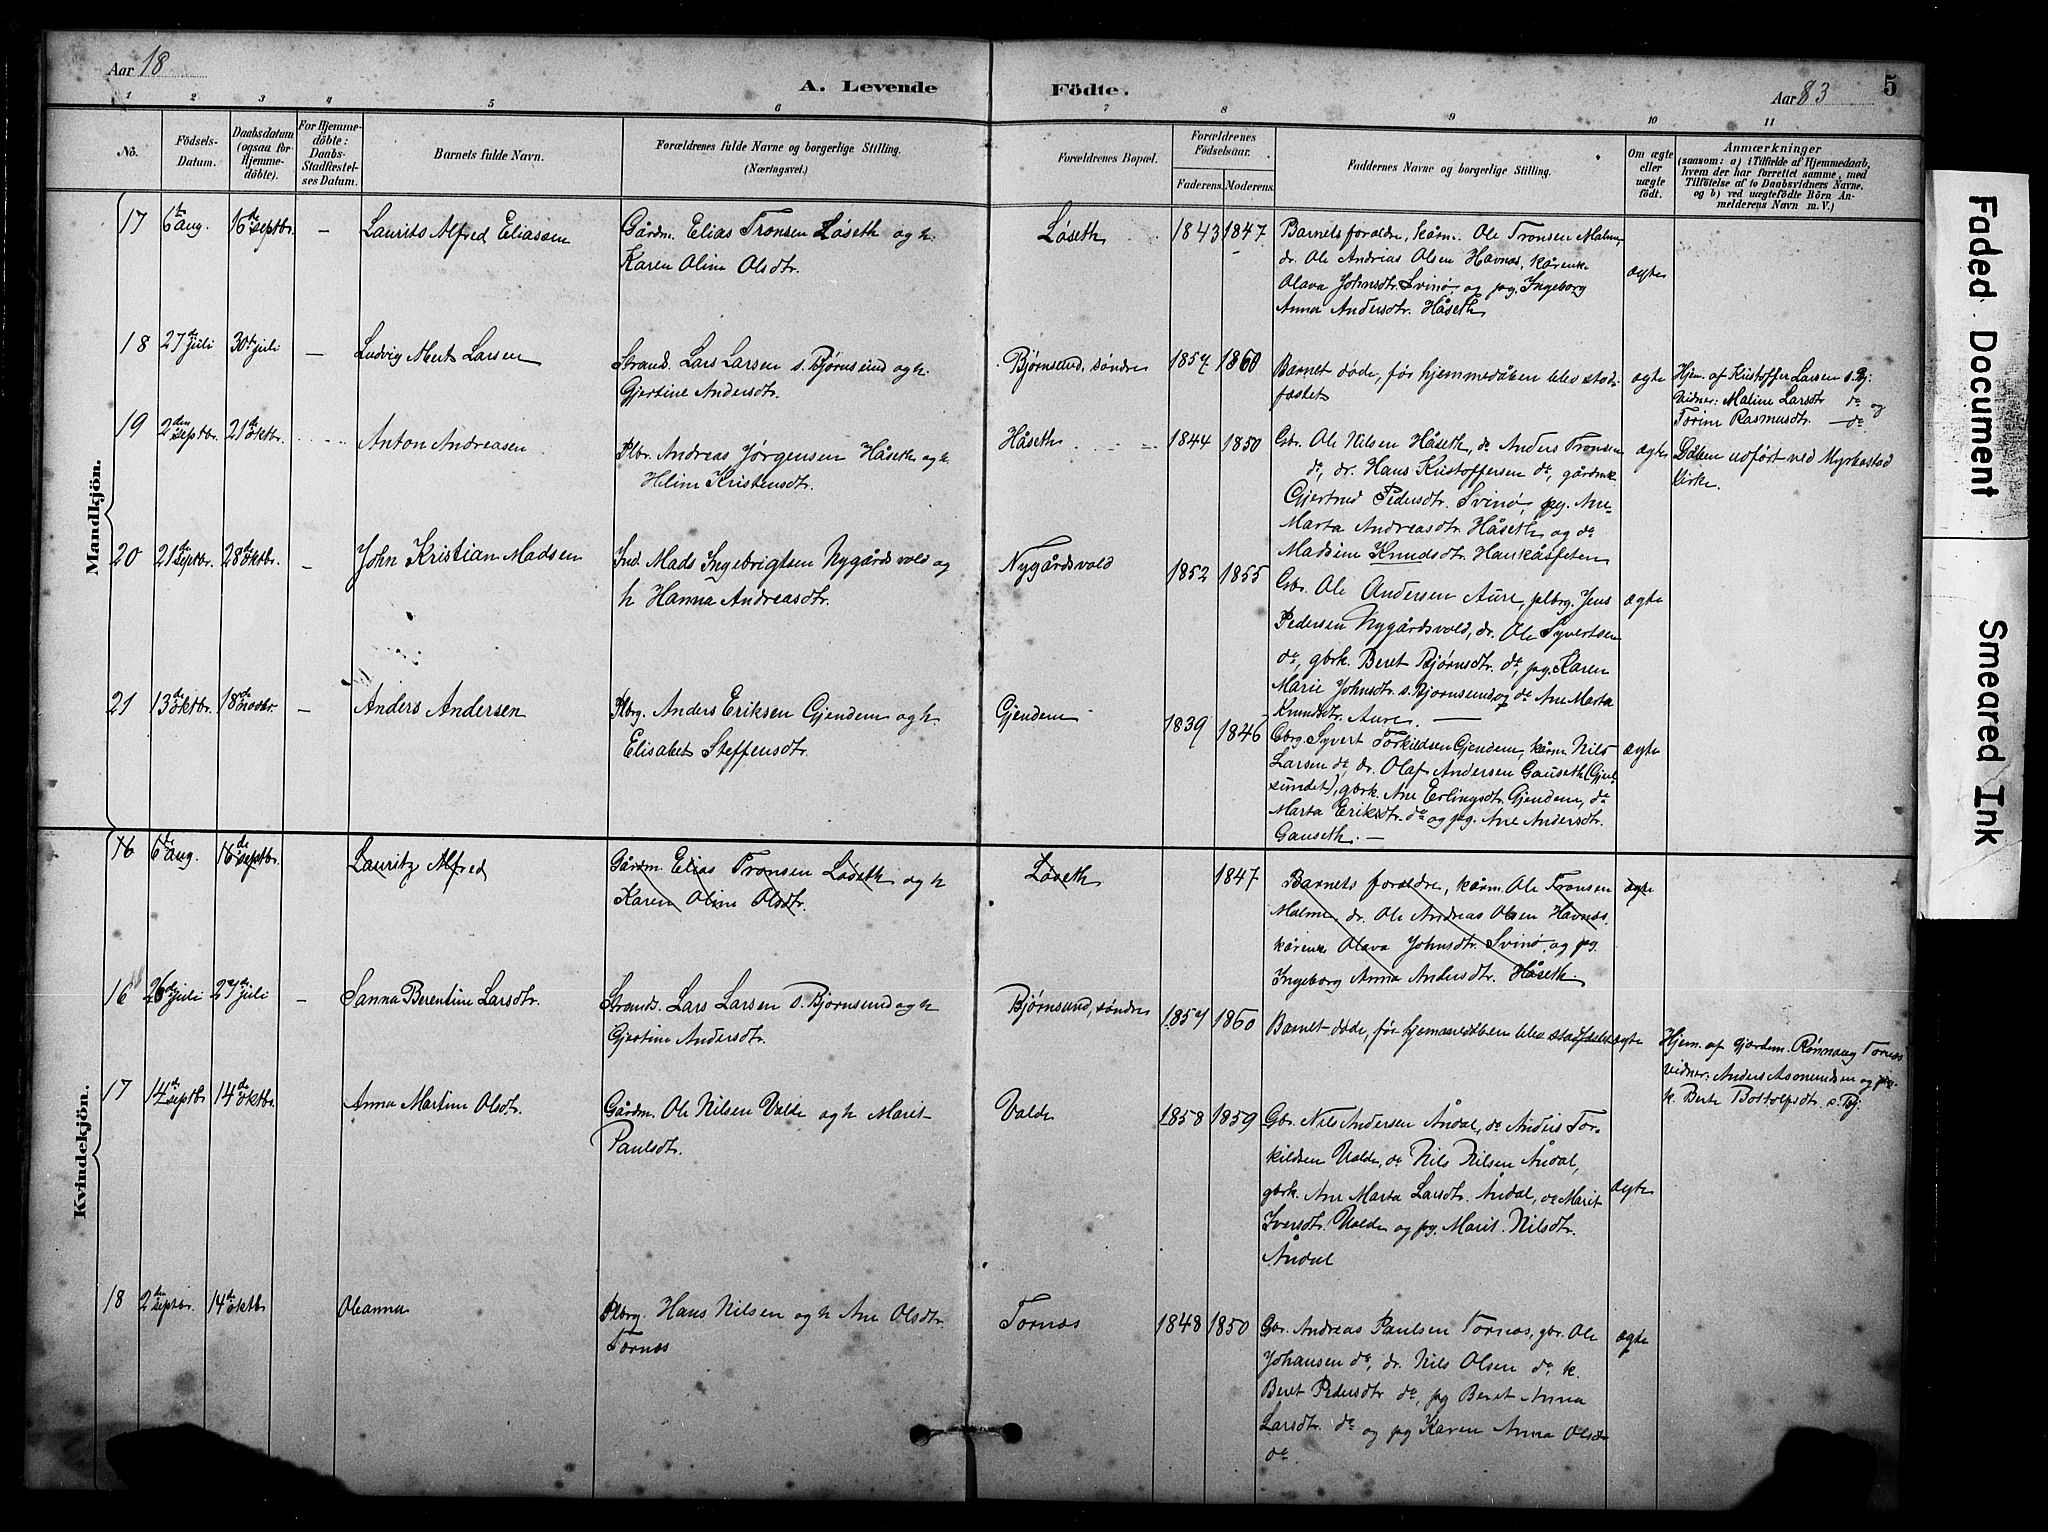 Aar 18
A. Levende Födte.
Aar 83
5
1 2 3 4 5 6 7 8 9 10 11
No.
Födsels-Datum.
Daabsdatum (ogsaa for Hjemme-döbte).
For Hjemme-döbte: Daabs-Stadfæstel-ses Datum.
Barnets fulde Navn.
Forældrenes fulde Navne og borgerlige Stilling.
(Næringsvei.)
Forældrenes Bopæl.
Forældrenes Födselsaar.
Faderens. Moderens.
Faddernes Navne og borgerlige Stilling.
Om ægte eller uægte födt.
Anmærkninger
(saasom: a) i Tilfælde af Hjemmedaab, hvem der har forrettet samme, med Tilföielse af to Daabsvidners Navne, og b) ved uægtefödte Börn An-melderens Navn m. V.)
Mandkjön.
17 6te aug. 16de septbr. – Laurits Alfred Eliassen
Gårdm. Elias Tronsen Løseth og h.
Karen Oline Olsdtr.
Løseth 1843 1847
Barnets forældre, kårm. Ole Tronsen Malme,
dr. Ole Andreas Olsen Havnås, kårenke
Olava Johnsdtr. Svinø, og pg. Ingeborg
Anna Andersdtr. Håseth
ægte
18 27de juli 30te juli – Ludvig Albert Larsen
Strands. Lars Larsen s. Bjørnsund og h.
Gjertine Andersdtr.
Bjørnsund, søndre 1857 1860
Barnet døde, før hjemmedåben blev stad-
fæstet
ægte
Hjem. af Kristoffer Larsen s. Bj.
Vidner: Maline Larsdtr do og
Torine Rasmusdtr. — do
19 2den septbr. 21de oktbr. Anton Andreasen
Plbr. Andreas Jørgensen Håseth og h.
Heline Kristensdtr.
Håseth 1844 1850
Gbr. Ole Nilsen Håseth, do Anders Tronsen
do, dr. Hans Kristoffersen do, gårdmk.
Gjertrud Pedersdtr. Svinø, pg. Ane
Marta Andreasdtr. Håseth og do
Madsine Knudsdtr. Haukåsfeten
ægte
Dåben udført ved Myrbostad
Kirke.
20 21de septbr. 28de oktbr. – John Kristian Madsen
Ind. Mads Ingebrigtsen Nygårdsvold og
h Hanna Andreasdtr.
Nygårdsvold 1852 1855
Gbr. Ole Andersen Aure, plbrg. Jens
Pedersen Nygårdsvold, dr. Ole Syvertsen
do, gbrk. Beret Bjørnsdtr. do, pg. Karen
Marie Johnsdtr. s. Bjørnsund og do Ane Marta
Knudsdtr. Aure. —
ægte
21 13de oktbr. 18de novbr. – Anders Andersen
Plbrg. Anders Eriksen Gjendem og h.
Elisabet Steffensdtr.
Gjendem 1839 1846
Gbrg. Syvert Torkildsen Gjendem, kårm. Nils
Larsen do, dr. Olaf Andersen Gauseth (Gjul-
sundet), gbrk. Ane Erlingsdtr. Gjendem, do
Marta Eriksdtr. do og pg. Ane Andersdtr.
Gauseth. —
ægte
Kvindekjön.
16 6te aug. 16de septbr. Lauritz Alfred
Gårdm. Elias Tronsen Løseth og h
Karen Oline Olsdtr.
Løseth 1847
Barnets forældre, kårm. Ole Tronsen
Malme, dr. Ole Andreas Olsen Havnås,
kårenke Olava Johnsdtr. Svinø, og pg.
Ingeborg Anna Andersdtr. Håseth.
ægte
16 26de juli 27de juli – Sanna Berentine Larsdtr.
Strands. Lars Larsen s. Bjørnsund og h
Gjertine Andersdtr.
Bjørnsund, søndre 1857 1860
Barnet døde, før hjemmedåben blev stadfæstet
ægte
Hjem. af gjordem. Rønnaug Tornes
vidner: Anders Asmundsen og
k. Berte Bottolfsdtr. s. Bj.
17 14de septbr 14de oktbr. Anna Martine Olsdtr.
Gårdm. Ole Nilsen Valde og h Marit
Paulsdtr.
Valde 1858 1859
Gbr. Nils Andersen Åndal, do Anders Tor-
kildsen Valde, do Nils Nilsen Åndal,
gbrk. Ane Marta Larsdtr. Åndal, do Marit
Iversdtr. Valde og pg. Marit Nilsdtr.
Åndal
ægte
18 2den septbr. 14de oktbr Oleanna
Plbrg. Hans Nilsen og h Ane Olsdtr.
Tornes
Tornes 1848 1850
Gbr. Andreas Paulsen Tornes, gbr. Ole
Johansen do, dr. Nils Olsen do, k.
Beret Pedersdtr do, pg Beret Anna
Larsdtr. do og pg Karen Anna Olsdtr
do.
ægte
Faded Document
Smeared Ink